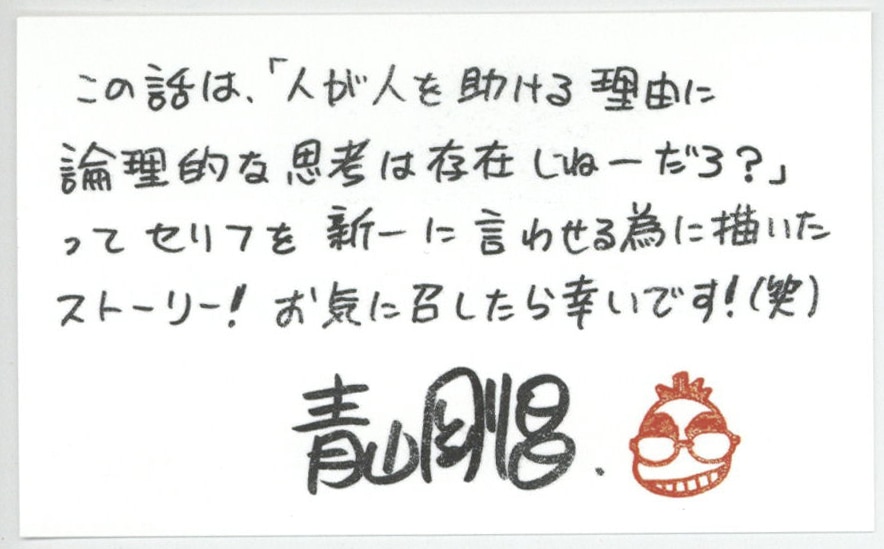 この話は、「人が人を助ける理由に
論理的な思考は存在しねーだろ?」
ってセリフを新一に言わせる為に描いた
ストーリー! お気に召したら幸いです!(笑)
青山剛昌.